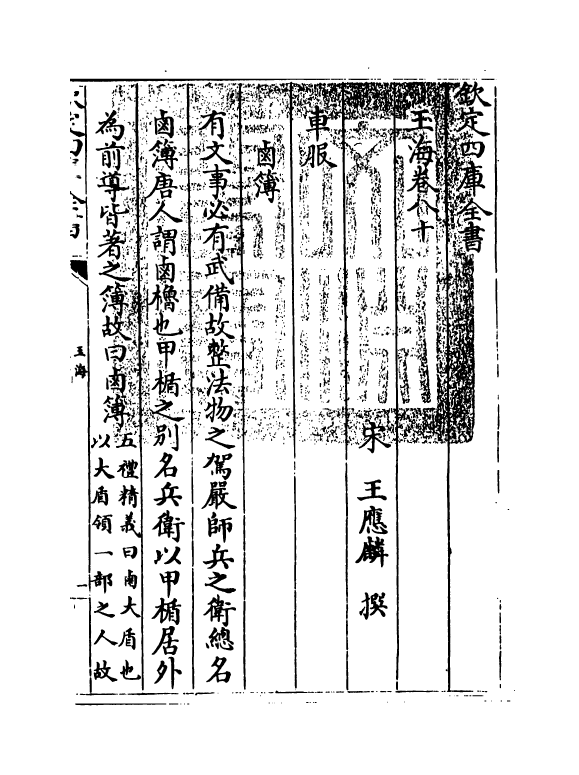 欽定四庫全書
玉海卷八十
宋 王應麟 撰
車服
鹵簿
有文事必有武備故整法物之駕嚴師兵之衛總名
鹵簿唐人謂鹵櫓也甲楯之别名兵衛以甲楯居外
為前導皆著之簿故曰鹵簿
五禮精義曰鹵大盾也
以大盾領一部之人故
玉海
一